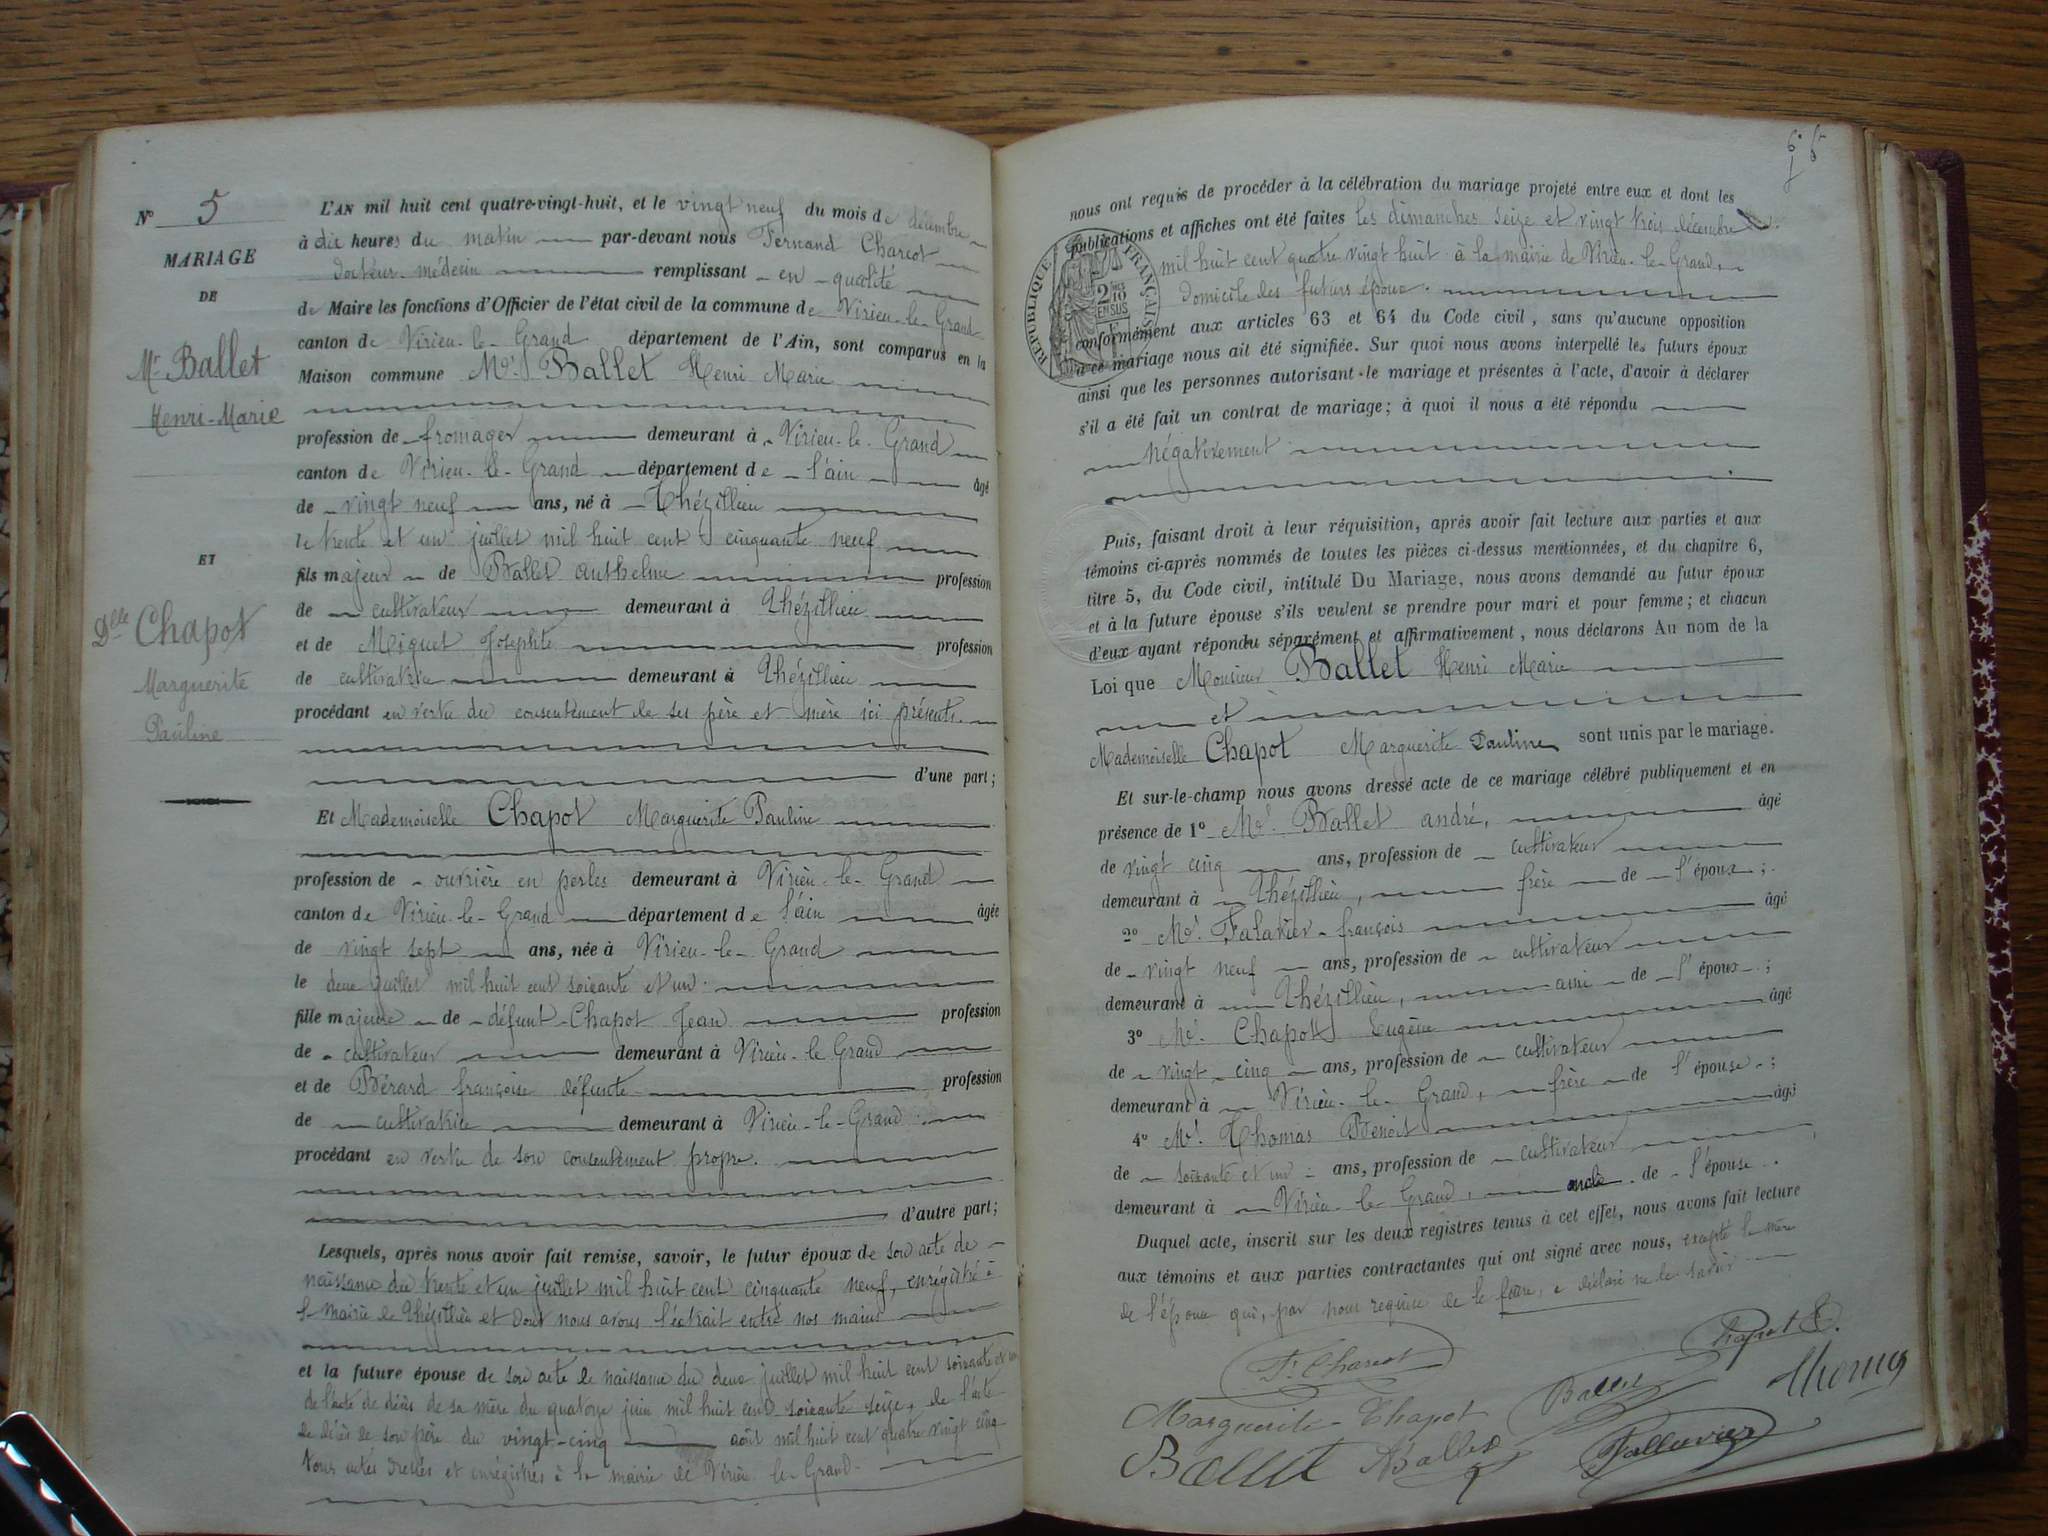 N° 5
MARIAGE
DE
Mr Ballet
Henri-Marie
ET
Dlle Chapot
Marguerite
Pauline
L'AN mil huit cent quatre-vingt-huit, et le vingt neuf du mois de décembre
à dix heures du matin par-devant nous Fernand Charcot
docteur-médecin remplissant en qualité
de Maire les fonctions d'Officier de l'état civil de la commune de Virieu-le-Grand
canton de Virieu-le-Grand département de l'Ain, sont comparus en la
Maison commune Mr. Ballet Henri Marie
profession de fromager demeurant à Virieu-le-Grand
canton de Virieu-le-Grand département de l'ain âgé
de vingt neuf ans, né à Thézillieu
le trente et un juillet mil huit cent cinquante neuf
fils majeur de Ballet anthelme profession
de cultivateur demeurant à Thézillieu
et de Miguet Josephte profession
de cultivatrice demeurant à Thézillieu
procédant en vertu du consentement de ses père et mère ici présents
d'une part;
Et Mademoiselle Chapot Marguerite Pauline
profession de ouvrière en perles demeurant à Virieu-le-Grand
canton de Virieu-le-Grand département de l'ain âgée
de vingt sept ans, née à Virieu-le-Grand
le deux juillet mil huit cent soixante et un.
fille majeure de défunt Chapot Jean profession
de cultivateur demeurant à Virieu-le Grand
et de Bérard françoise défunte profession
de cultivatrice demeurant à Virieu-le-Grand
procédant en vertu de son consentement propre.
d'autre part;
Lesquels, après nous avoir fait remise, savoir, le futur époux de son acte de
naissance du trente et un juillet mil huit cent cinquante neuf, enrégistré à
la mairie de Thézillieu et dont nous avons l'extrait entre nos mains
et la future épouse de son acte de naissance du deux juillet mil huit cent soixante et un
de l'acte de décès de sa mère du quatorze juin mil huit cent soixante seize, de l'acte
de décès de son père du vingt-cinq août mil huit cent quatre vingt cinq
tous actes dressés et enrégistrés à la mairie de Virieu-le-Grand.
nous ont requis de procéder à la célébration du mariage projeté entre eux et dont les
publications et affiches ont été faites les dimanches seize et vingt trois décembre
mil huit cent quatre vingt huit à la mairie de Virieu-le-Grand,
domicile des futurs époux.
RÉPUBLIQUE FRANÇAISE
2 10 EN SUS
conformément aux articles 63 et 64 du Code civil, sans qu'aucune opposition
à ce mariage nous ait été signifiée. Sur quoi nous avons interpellé les futurs époux
ainsi que les personnes autorisant le mariage et présentes à l'acte, d'avoir à déclarer
s'il a été fait un contrat de mariage; à quoi il nous a été répondu
négativement
Puis, faisant droit à leur réquisition, après avoir fait lecture aux parties et aux
témoins ci-après nommés de toutes les pièces ci-dessus mentionnées, et du chapitre 6,
titre 5, du Code civil, intitulé Du Mariage, nous avons demandé au futur époux
et à la future épouse s'ils veulent se prendre pour mari et pour femme; et chacun
d'eux ayant répondu séparément et affirmativement, nous déclarons Au nom de la
Loi que Monsieur Ballet Henri Marie
et
Mademoiselle Chapot Marguerite Pauline sont unis par le mariage.
Et sur-le-champ nous avons dressé acte de ce mariage célébré publiquement et en
présence de 1° Mr. Ballet andré, âgé
de vingt cinq ans, profession de cultivateur
demeurant à Thézillieu, frère de l'époux;
2° Mr. Falavier françois âgé
de vingt neuf ans, profession de cultivateur
demeurant à Thézillieu, ami de l'époux;
3° Mr. Chapot Eugène âgé
de vingt cinq ans, profession de cultivateur
demeurant à Virieu-le-Grand, frère de l'épouse;
4° Mr. Thomas Benoit âgé
de soixante et un ans, profession de cultivateur
demeurant à Virieu-le-Grand, oncle de l'épouse.
Duquel acte, inscrit sur les deux registres tenus à cet effet, nous avons fait lecture
aux témoins et aux parties contractantes qui ont signé avec nous, excepté la mère
de l'époux qui, par nous requise de le faire, a déclaré ne le savoir
F. Charcot
Chapot E.
Marguerite Chapot
Ballet
Thomas
Ballet
A Ballet
Fallavier